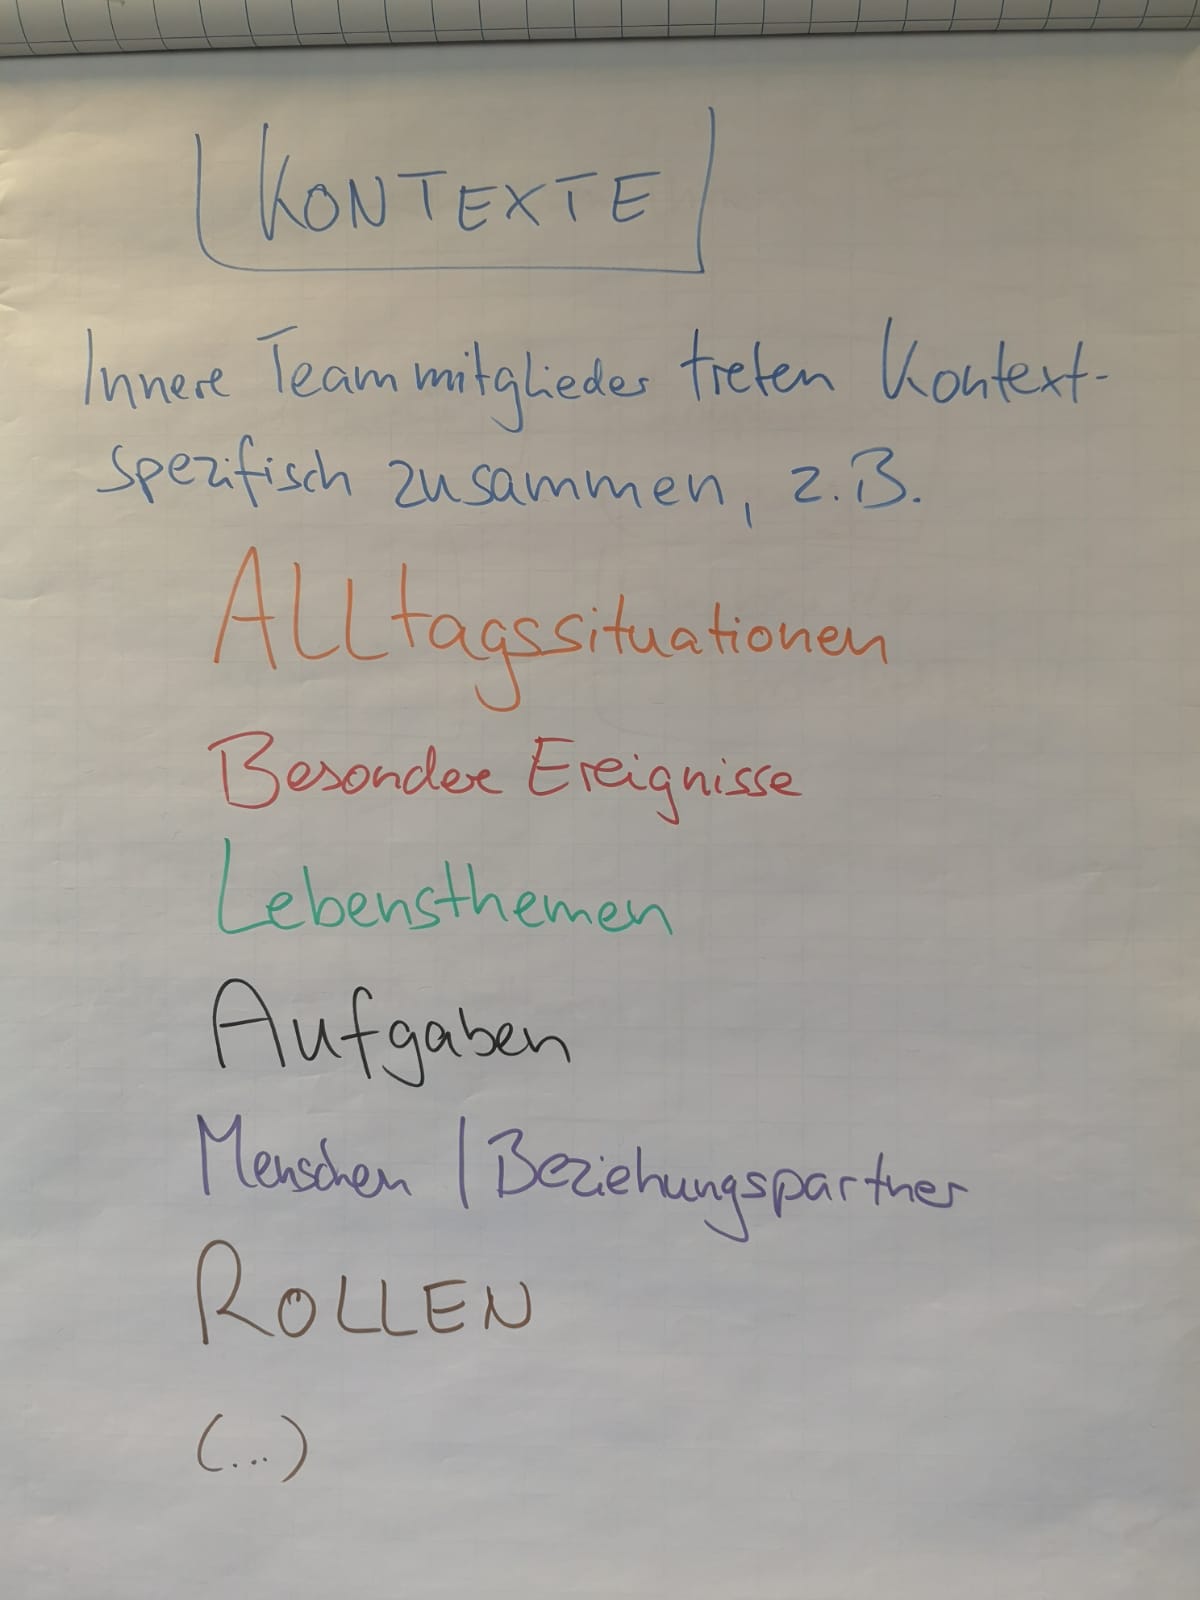 KONTEXTE
Innere Teammitglieder treten Kontext-
spezifisch zusammen, z.B.
ALLtagssituationen
Besondere Ereignisse
Lebensthemen
Aufgaben
Menschen / Beziehungspartner
ROLLEN
(...)